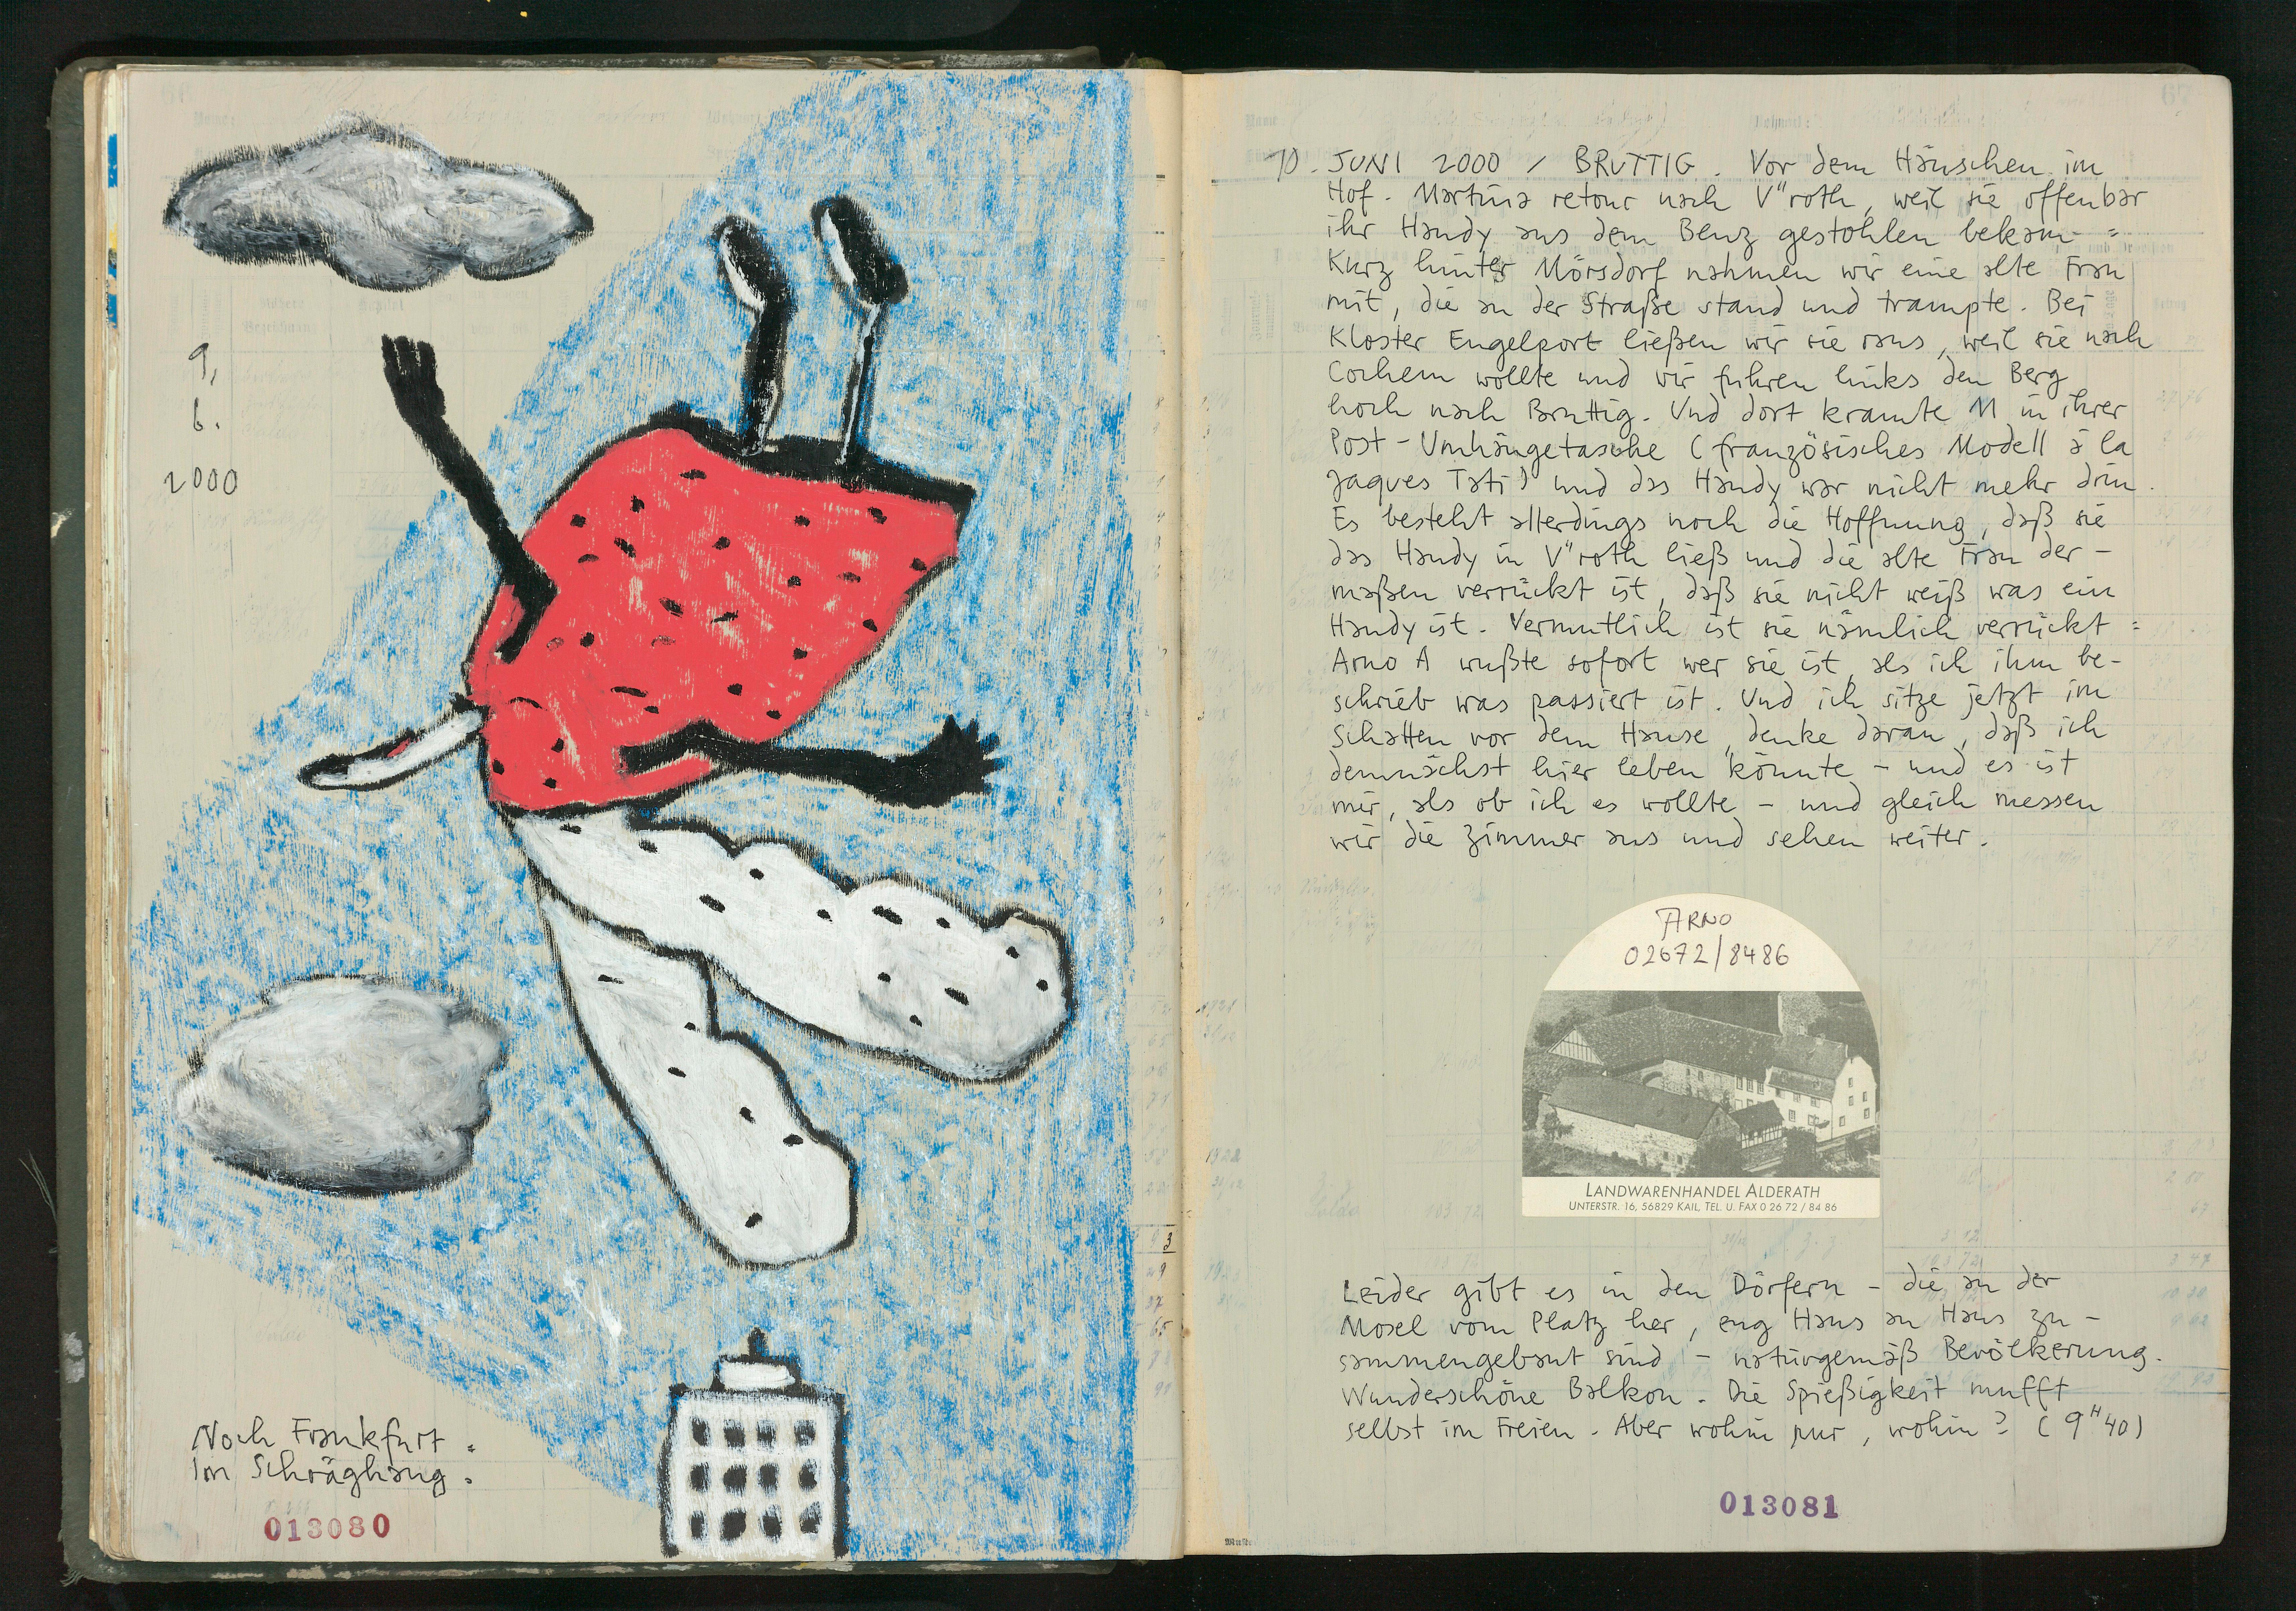 9.
6.
2000
Noch Frankfurt =
Im Schräghang.
013080
10. JUNI 2000 / BRUTTIG. Vor dem Häuschen im
Hof. Martina retour nach V"roth, weil sie offenbar
ihr Handy aus dem Benz gestohlen bekam =
Kurz hinter Mörsdorf nahmen wir eine alte Frau
mit, die an der Straße stand und trampte. Bei
Kloster Engelport ließen wir sie raus, weil sie nach
Cochem wollte und wir fuhren links den Berg
hoch nach Bruttig. Und dort kramte M in ihrer
Post-Umhängetasche (französisches Modell à la
Jaques Tati) und das Handy war nicht mehr drin.
Es besteht allerdings noch die Hoffnung, daß sie
das Handy in V"roth ließ und die alte Frau der-
maßen verrückt ist, daß sie nicht weiß was ein
Handy ist. Vermutlich ist sie nämlich verrückt =
Arno A wußte sofort wer sie ist, als ich ihm be-
schrieb was passiert ist. Und ich sitze jetzt im
Schatten vor dem Hause, denke daran, daß ich
demnächst hier leben könnte - und es ist
mir, als ob ich es wollte - und gleich messen
wir die Zimmer aus und sehen weiter.
ARNO
02672/8486
LANDWARENHANDEL ALDERATH
UNTERSTR. 16, 56829 KAIL, TEL. U. FAX 0 26 72 / 84 86
Leider gibt es in den Dörfern - die an der
Mosel vom Platz her, eng Haus an Haus zu-
sammengebaut sind - naturgemäß Bevölkerung.
Wunderschöne Balkon. Die Spießigkeit mufft
selbst im Freien. Aber wohin nur, wohin? (9H40)
013081